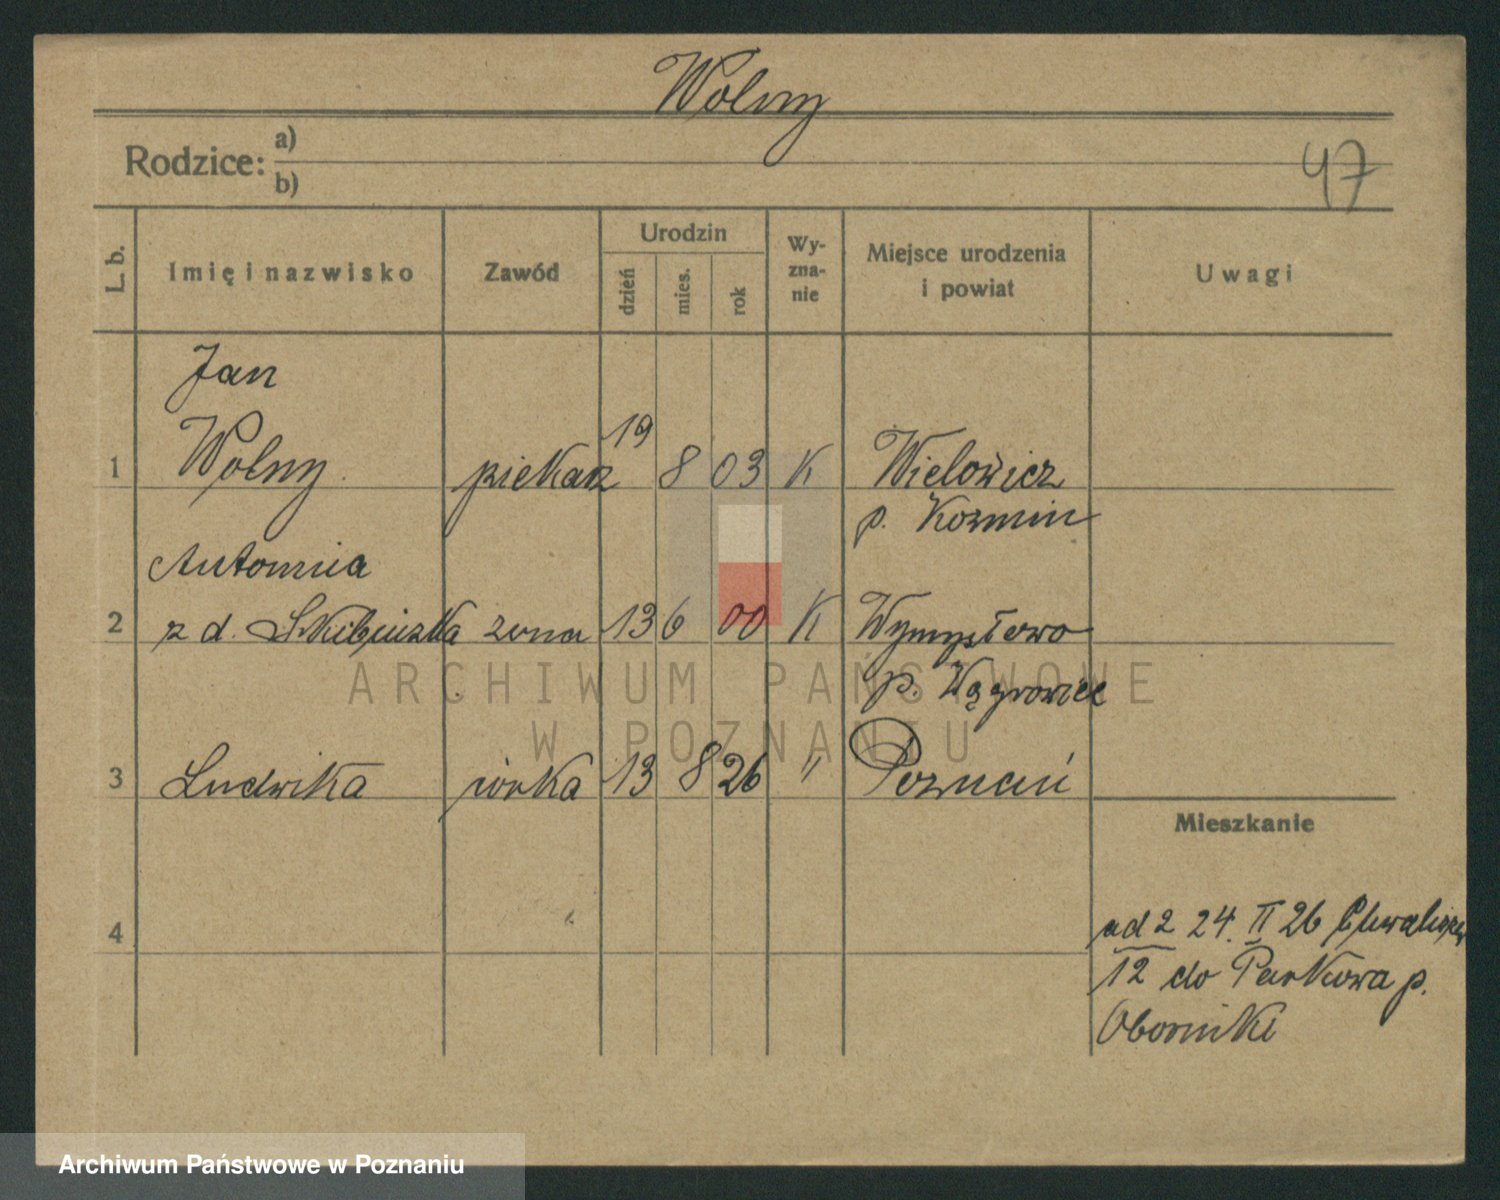 Wolny
Rodzice: a)
b)
47
L. b.
Imię i nazwisko
Zawód
Urodzin
dzień
mies.
rok
Wy-
zna-
nie
Miejsce urodzenia
i powiat
Uwagi
Jan
1 Wolny piekarz 19 8 03 K Wielowicz
p. Kozmin
Antonia
2 z d. Skibińska zona 13 6 00 K Wymysłowo
p. Wągrowiec
3 Ludwika córka 13 8 26 " Poznań
Mieszkanie
4
ad 2 24. II 26 Chwaliszew
12 do Parkowa p.
Oborniki
ARCHIWUM PAŃSTWOWE
W POZNANIU
Archiwum Państwowe w Poznaniu